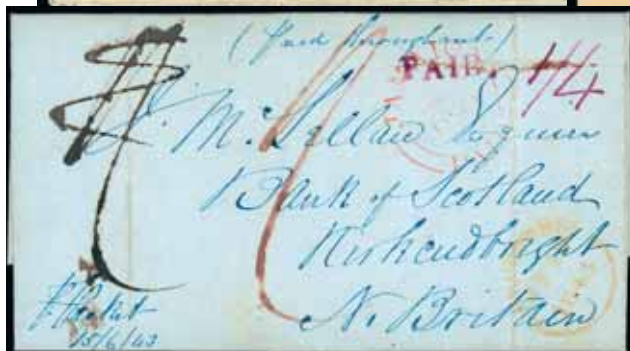 (Paid throughout)
PAID. 1/4
McLellan Esquire
Bank of Scotland
Kirkcudbright
N. Britain
Packet
15/6/43